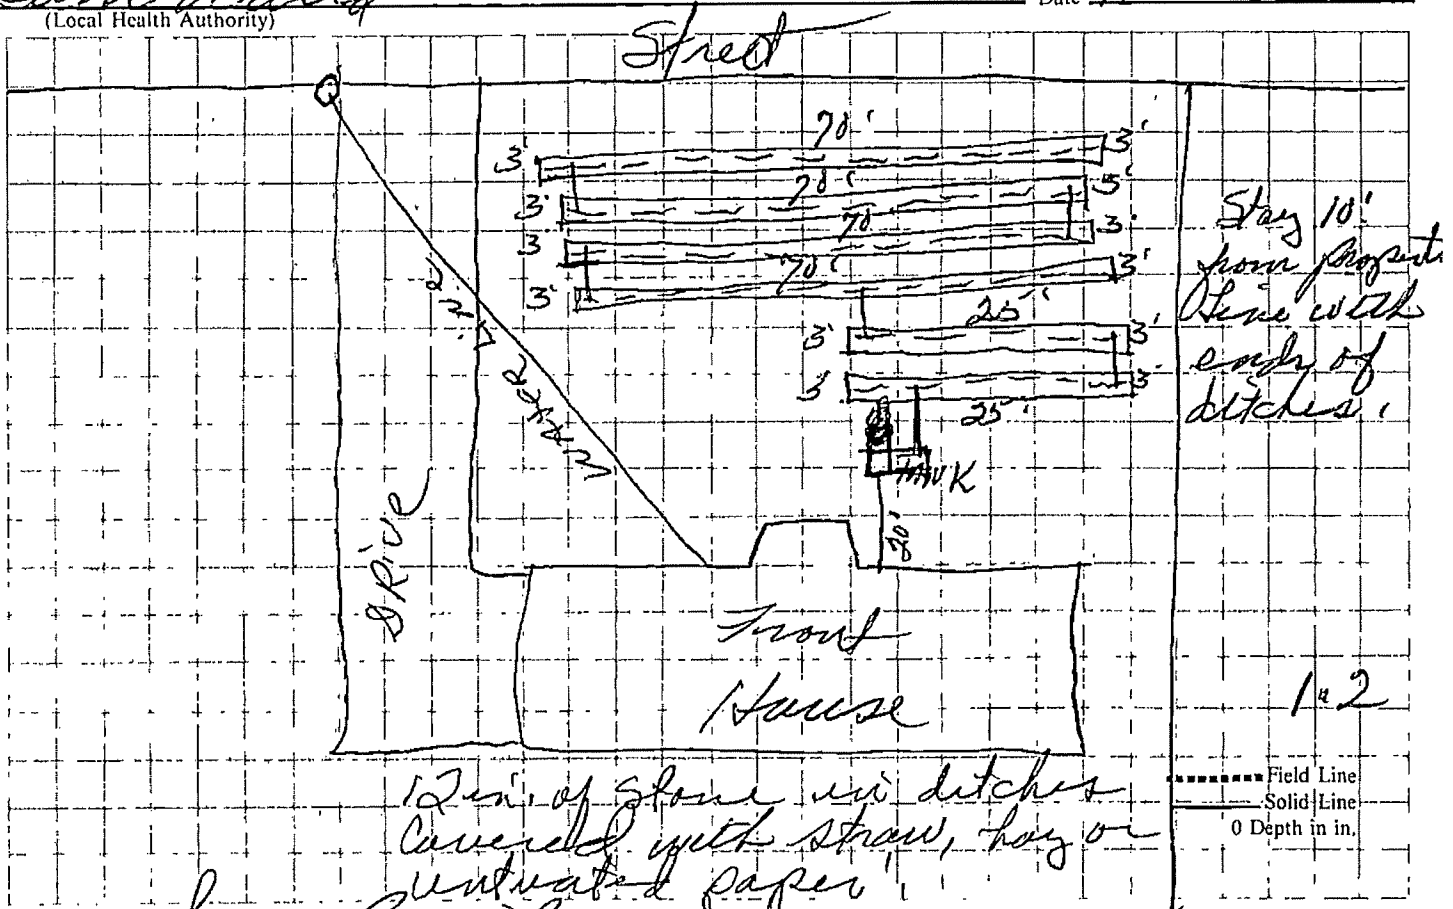 (Local Health Authority)
Date
Street
70'
3' 3'
70'
3' 5'
70'
3 3'
70'
3' 3'
25'
3' 3'
3 3'
25'
TANK
20'
WATER LiNe
DRive
Stay 10'
from property
line with
ends of
ditches.
Front
House
1"2
Field Line
Solid Line
0 Depth in in.
12 in. of Stone in ditches
Covered with straw, hay or
untreated paper.